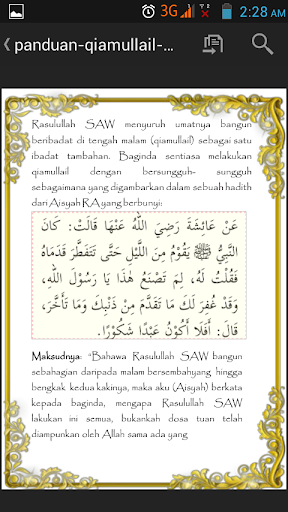 3G 2:28 AM
panduan-qiamullail-...
Rasulullah SAW menyuruh umatnya bangun
beribadat di tengah malam (qiamullail) sebagai satu
ibadat tambahan. Baginda sentiasa melakukan
qiamullail dengan bersungguh- sungguh
sebagaimana yang digambarkan dalam sebuah hadith
dari Aisyah RA yang berbunyi:
عَنْ عَائِشَةَ رَضِيَ اللهُ عَنْهَا قَالَتْ: كَانَ
النَّبِيُّ ﷺ يَقُوْمُ مِنَ اللَّيْلِ حَتَّى تَتَفَطَّرَ قَدَمَاهُ
فَقُلْتُ لَهُ، لِمَ تَصْنَعُ هٰذَا يَا رَسُوْلَ اللهِ،
وَقَدْ غُفِرَ لَكَ مَا تَقَدَّمَ مِنْ ذَنْبِكَ وَمَا تَأَخَّرَ،
قَالَ: أَفَلَا أَكُوْنُ عَبْدًا شَكُوْرًا.
Maksudnya: "Bahawa Rasulullah SAW bangun
sebahagian daripada malam bersembahyang hingga
bengkak kedua kakinya, maka aku (Aisyah) berkata
kepada baginda, mengapa Rasulullah SAW
lakukan ini semua, bukankah dosa tuan telah
diampunkan oleh Allah sama ada yang